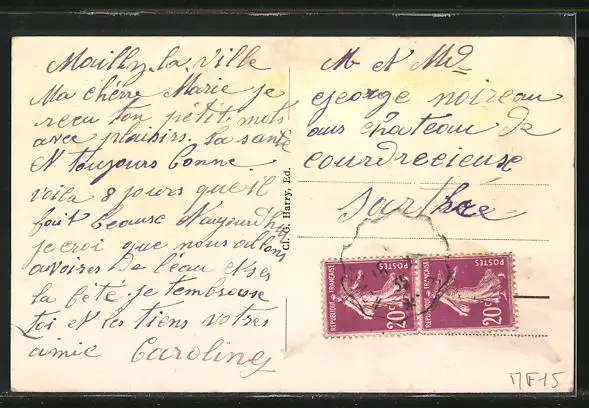 Mailly-la-Ville
Ma chérre Marie je
reçu ton pétit mots
avec plaisirs. la santé
et toujours bonne
voila 8 jours que il
fait beause
je croi que nous allons
avoires de l'eau et ses
la fété. je t'embrasse
toi et les tiens votres
amie Caroline
Cl. G. Harry, Ed.
Mr et Md
george noireau
aus château de
courdrecieuse
Sarthe
REPUBLIQUE FRANÇAISE
POSTES
20c
REPUBLIQUE FRANÇAISE
POSTES
20c
MF15